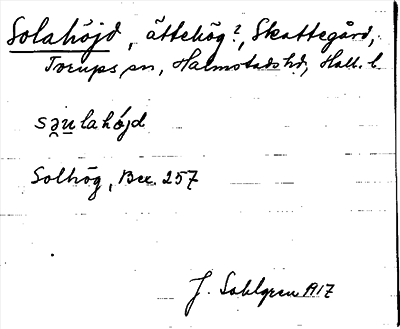 Solahöjd, ättehög?, Skattegård,
Torups sn, Halmstads hd, Hall. l.
sə̯u̲lahójd
Solhög, Bex. 257
J. Sahlgren 1917